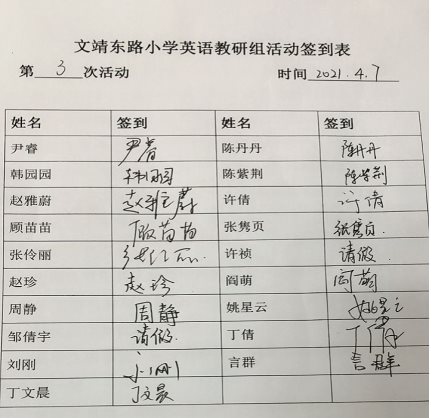 文靖东路小学英语教研组活动签到表
第 3 次活动 时间 2021.4.7
姓名 签到 姓名 签到
尹睿 尹睿 陈丹丹 陈丹丹
韩园园 韩园园 陈紫荆 陈紫荆
赵雅蔚 赵雅蔚 许倩 许倩
顾苗苗 顾苗苗 张隽页 张隽页
张伶丽 张伶丽 许祯 请假
赵珍 赵珍 阎萌 阎萌
周静 周静 姚星云 姚星云
邹倩宇 请假 丁倩 丁倩
刘刚 刘刚 言群 言群
丁文晨 丁文晨